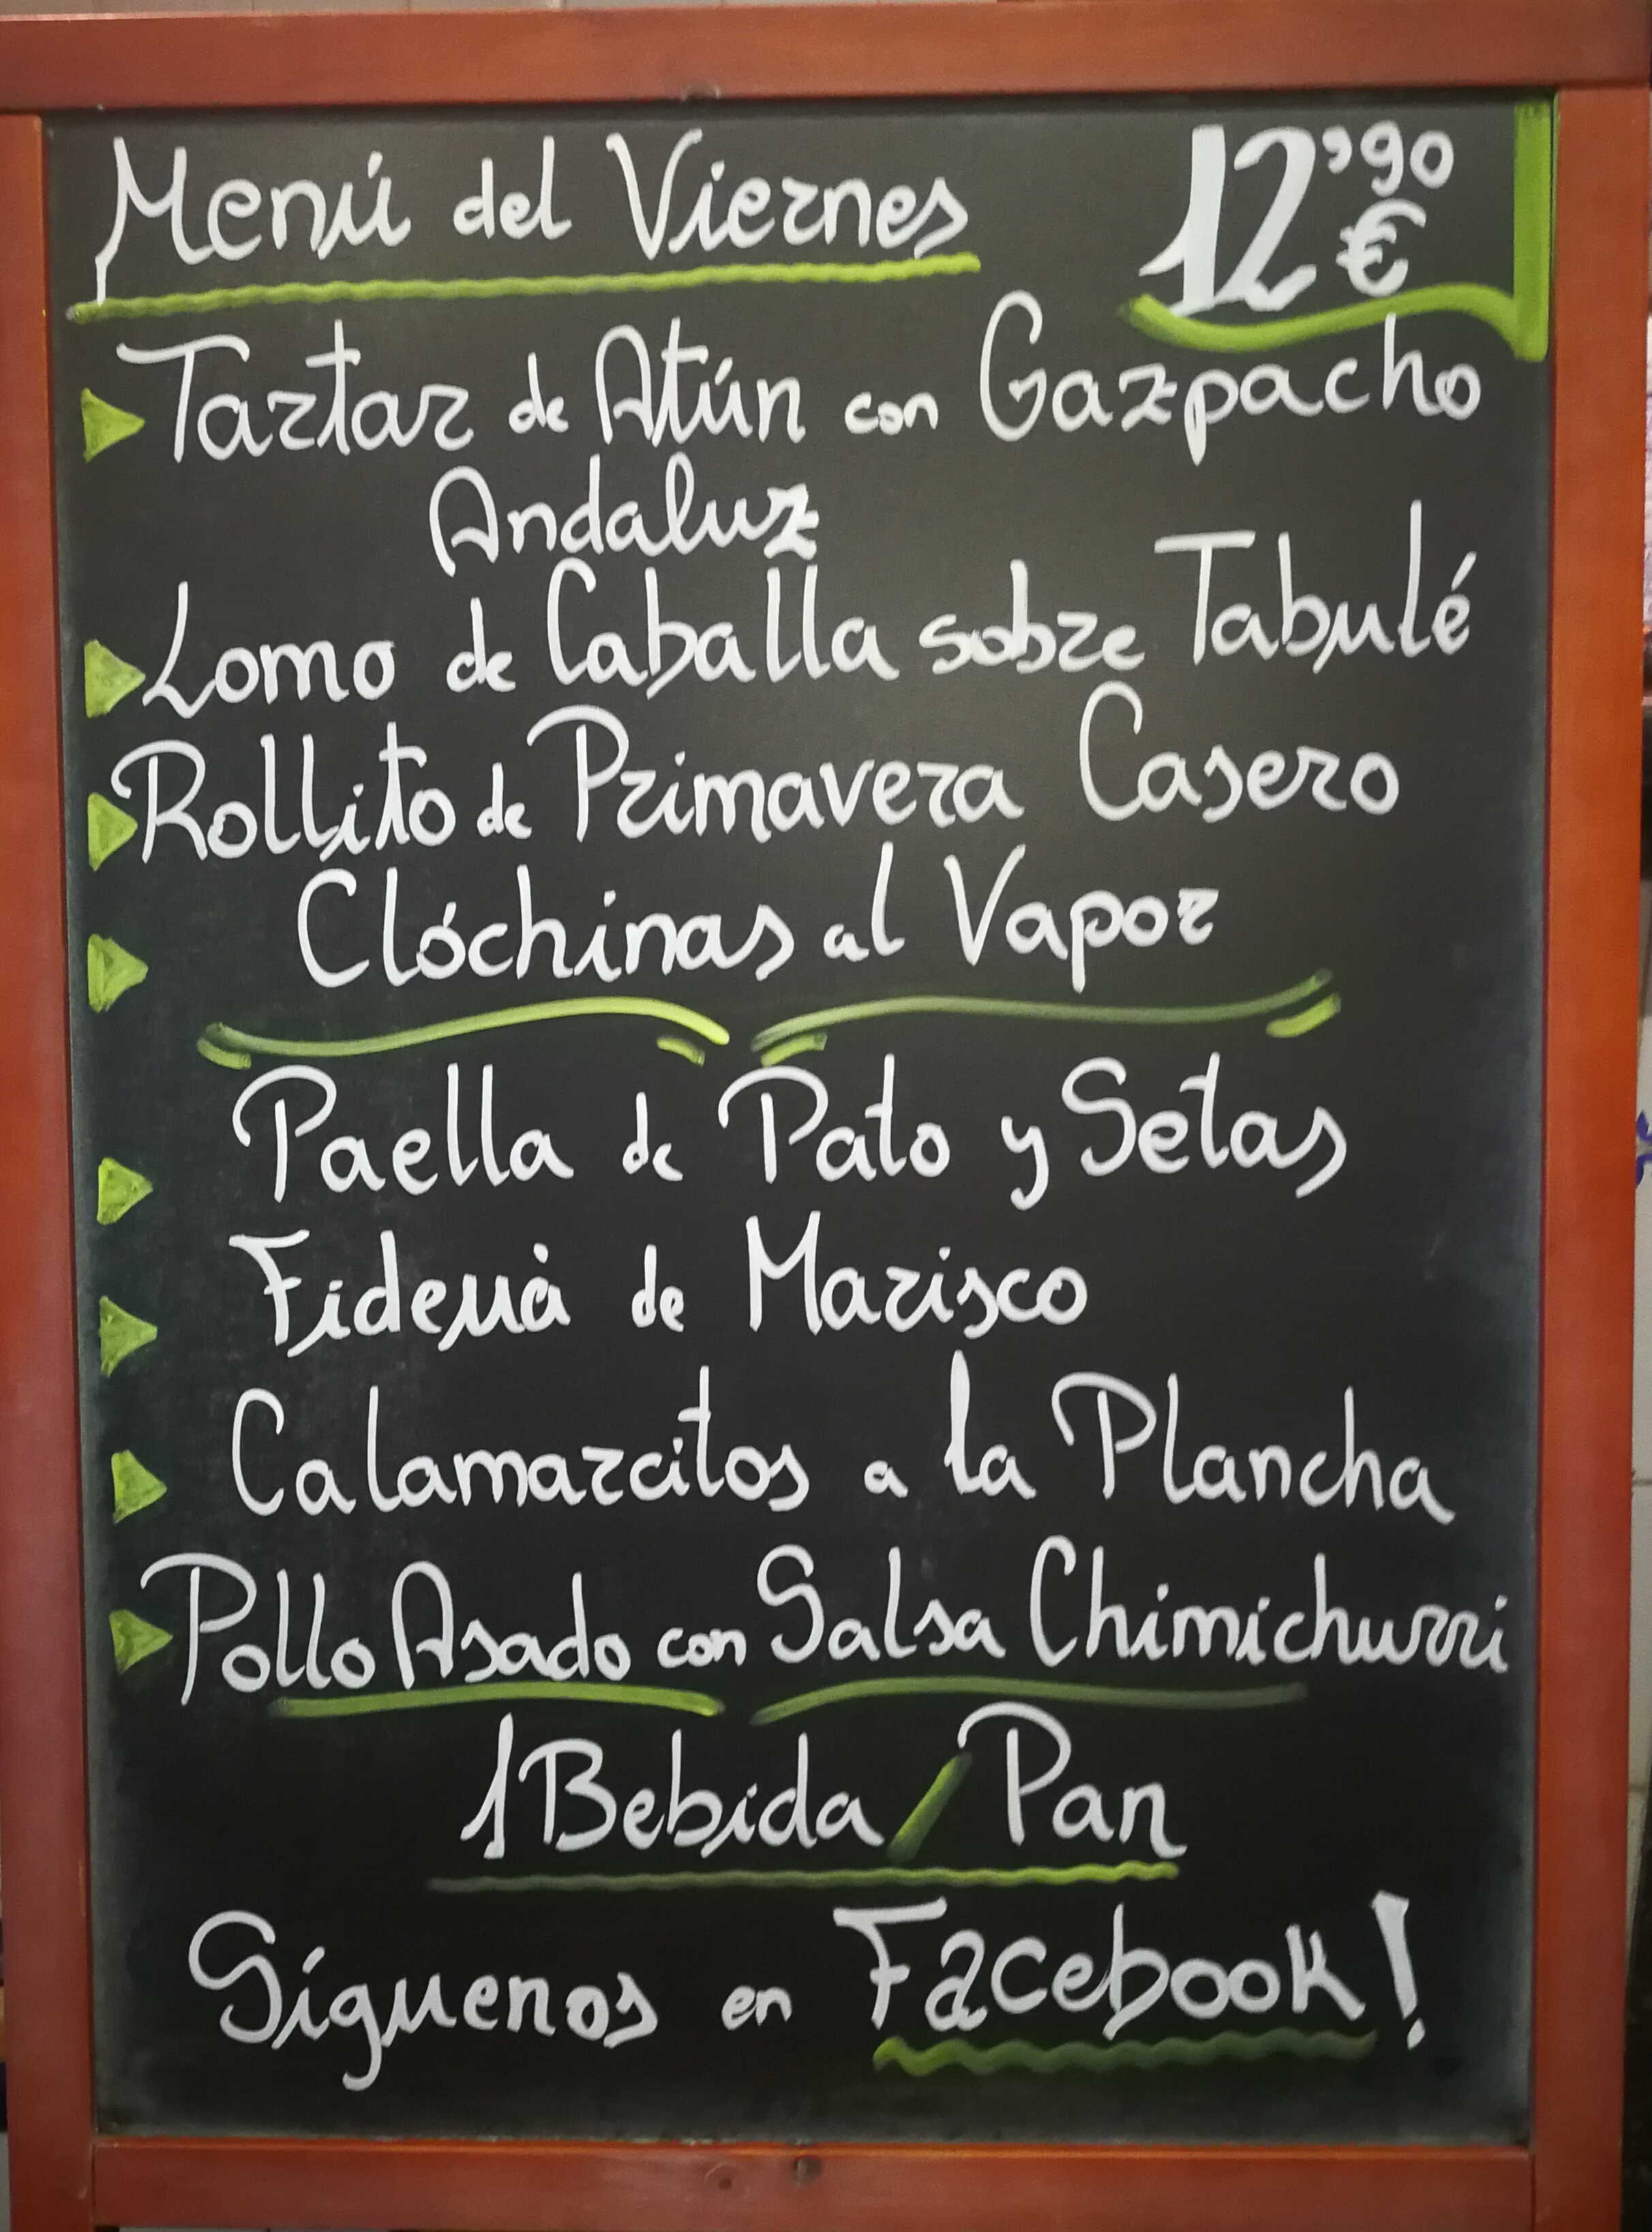 Menú del Viernes 12'90 €
Tartar de Atún con Gazpacho
Andaluz
Lomo de Caballa sobre Tabulé
Rollito de Primavera Casero
Clóchinas al Vapor
Paella de Pato y Setas
Fideuà de Marisco
Calamarcitos a la Plancha
Pollo Asado con Salsa Chimichurri
1 Bebida / Pan
Síguenos en Facebook!